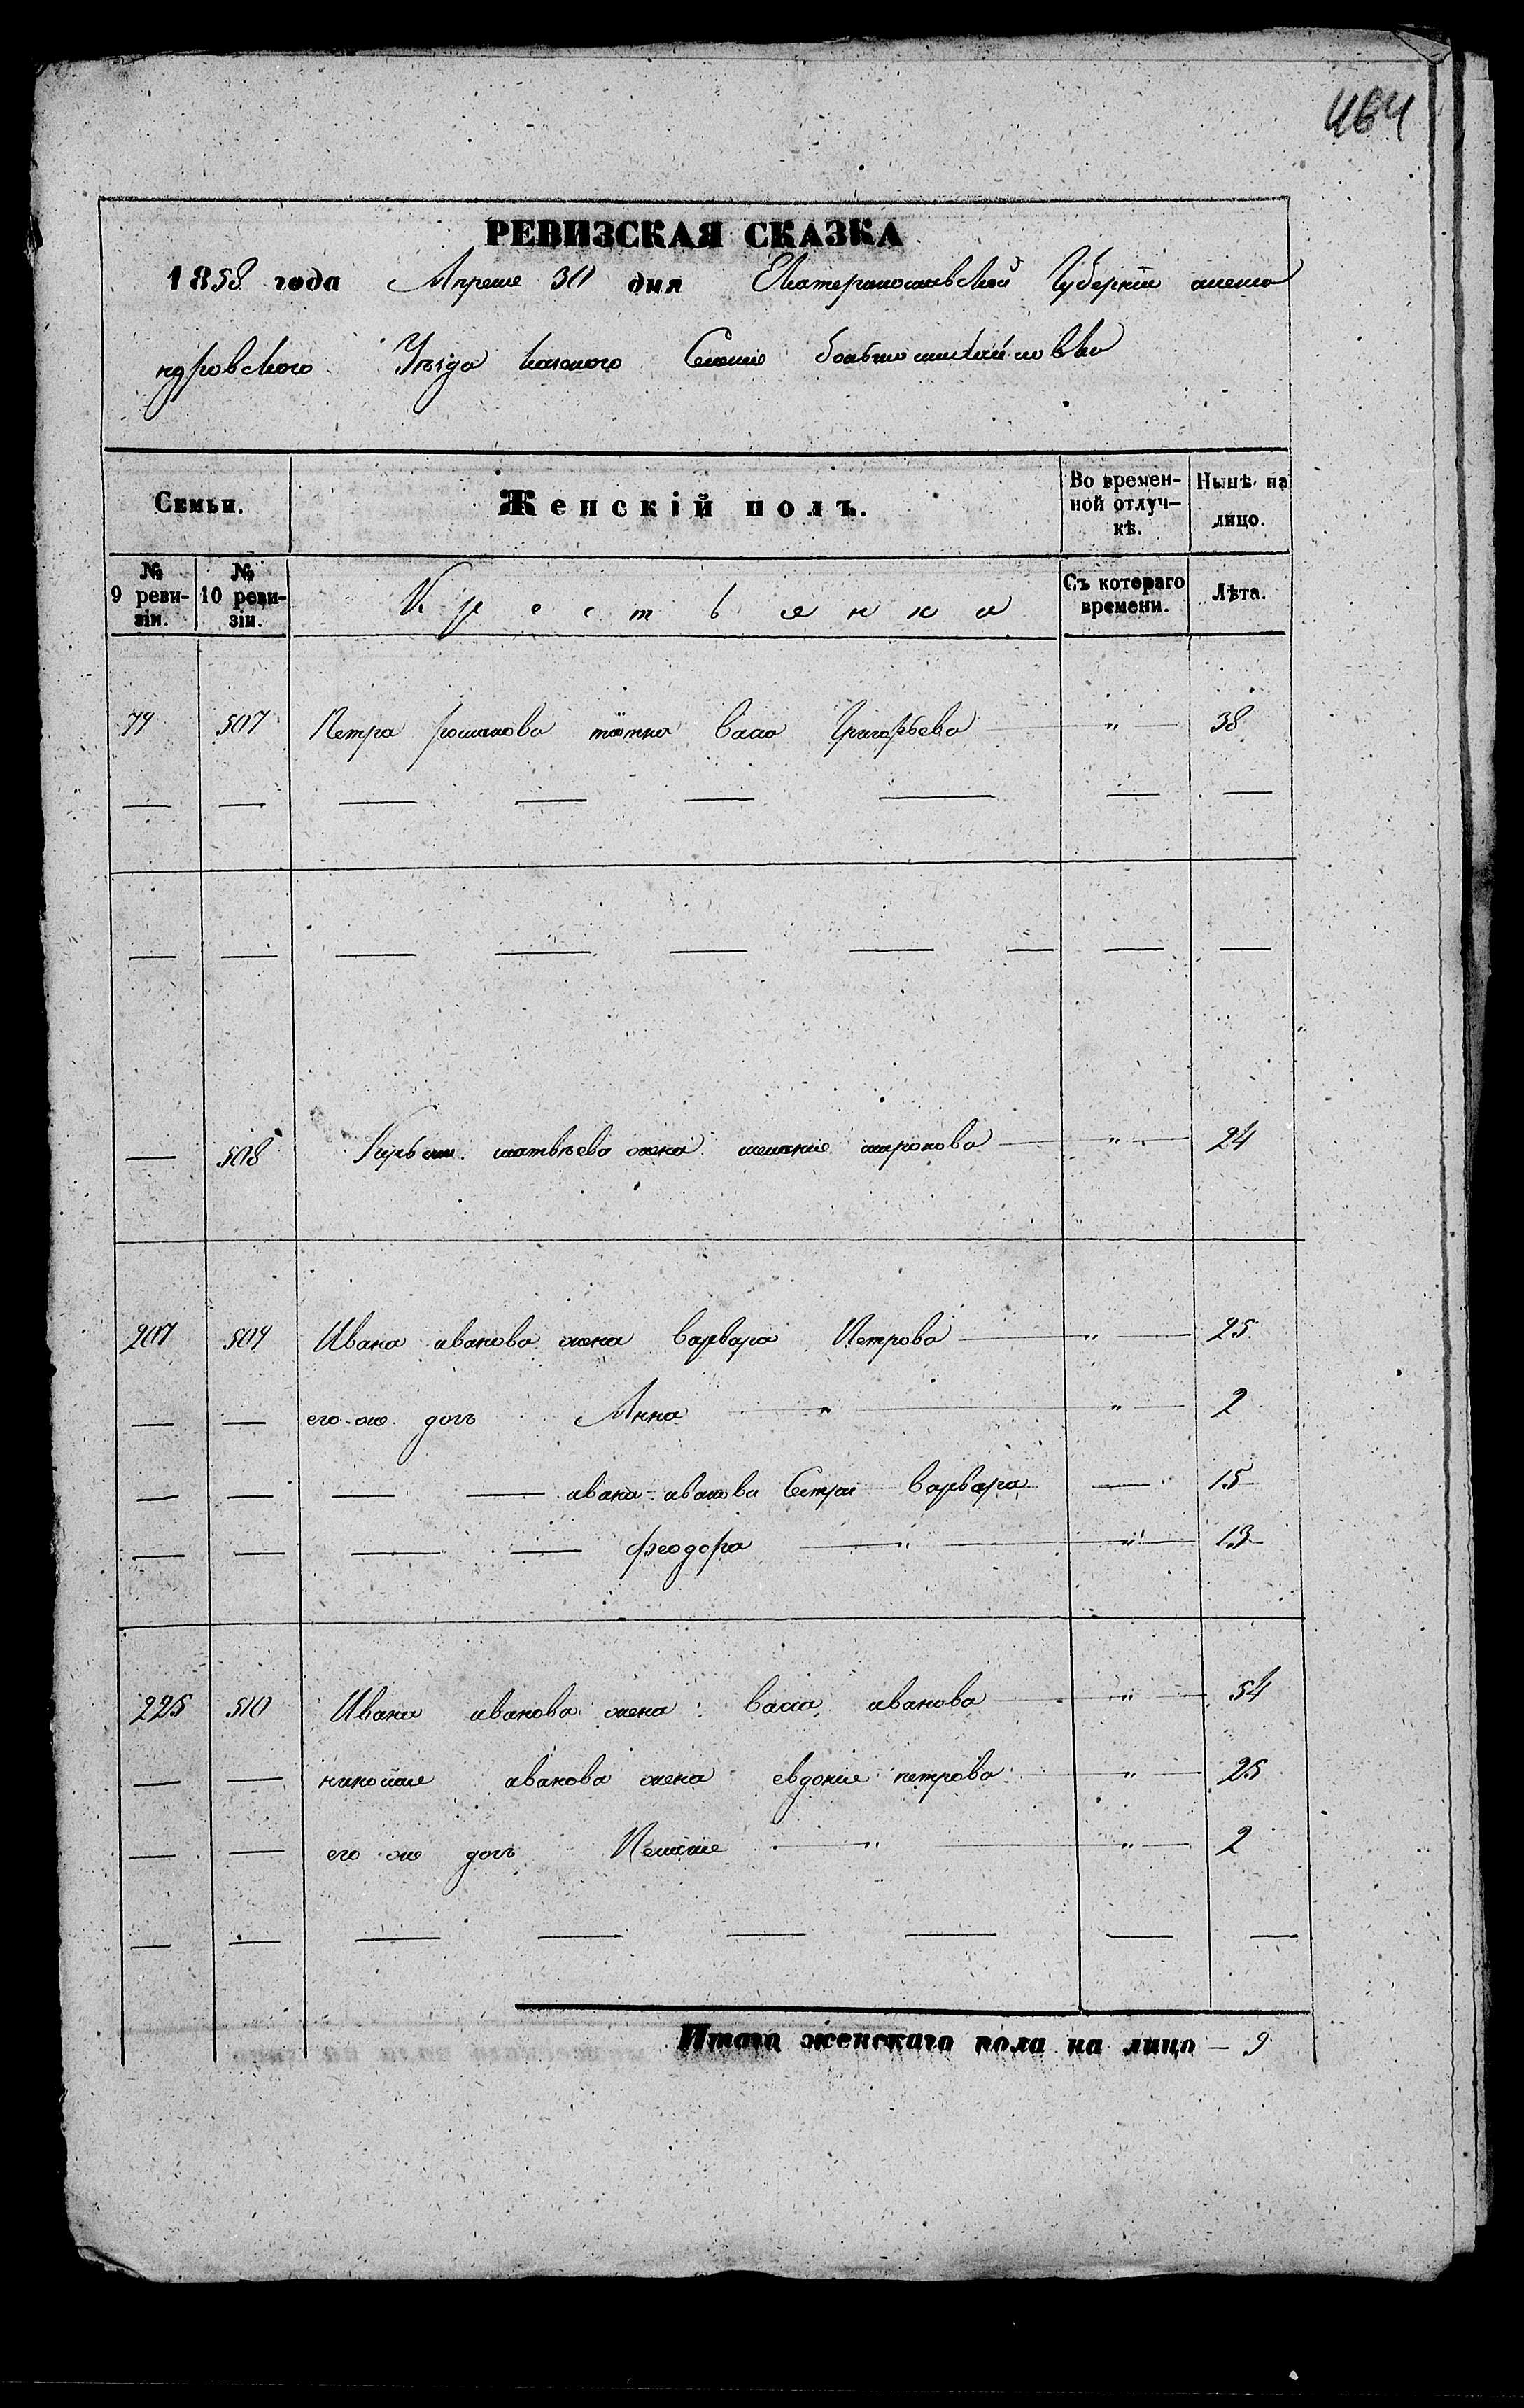 464
РЕВИЗСКАЯ СКАЗКА
1858 года Апреля 30 дня Екатеринославской Губернии алекса
ндровского Уѣзда казеного Селенія большомихайловка
Семьи. Женскій полъ. Во времен- Нынѣ на
ной отлуч- лицо.
кѣ.
№ № Крестьянка Съ котораго Лѣта.
9 реви- 10 реви- времени.
зіи. зіи.
79 507 Петра романова тётка васа Григорьева " 38
508 матвѣева жена меланія миронова " 24
207 509 Ивана иванова жена варвара Петрова " 25
его же дочь Анна " " 2
ивана иванова Сестра варвара 15
феодора " " 13
225 510 Ивана иванова жена васа иванова " 54
николая иванова жена евдокія петрова " 25
его же дочь Пелагія " " 2
Итого женскаго пола на лицо — 9